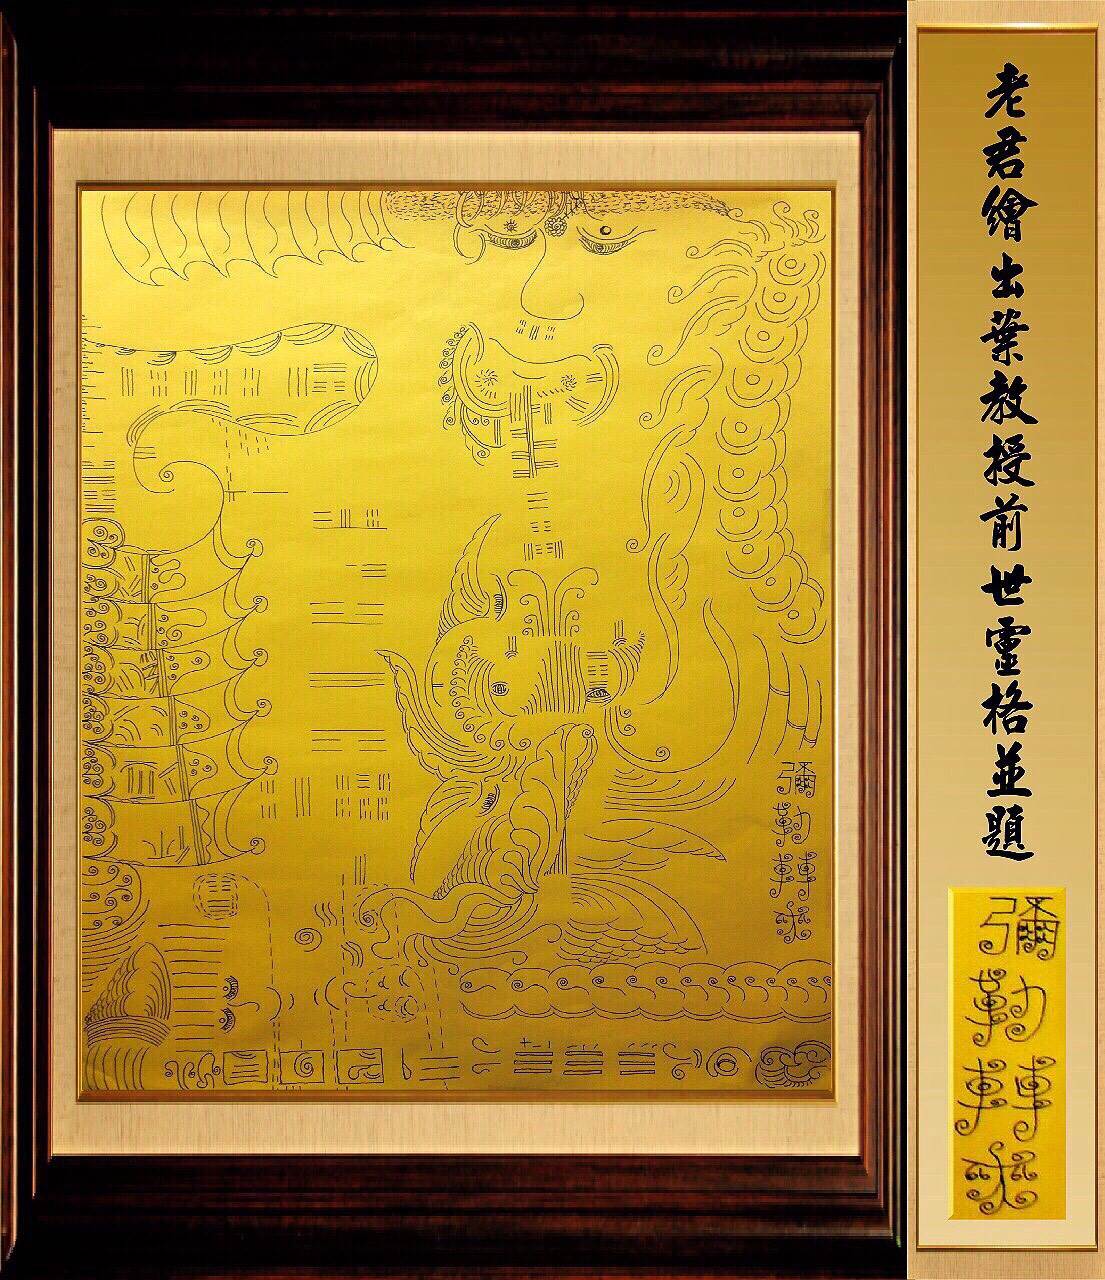 老君繪出葉教授前世靈格並題
彌勒轉來
彌勒轉來